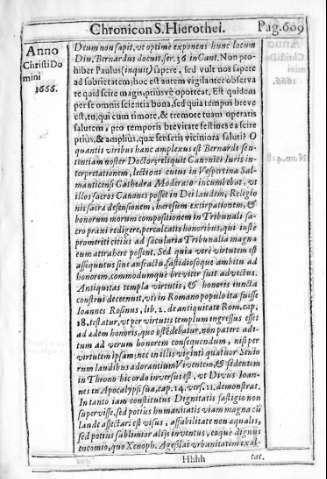 Chronicon S. Hierothei. Pag. 609
Anno
Christi Do
mini
1666.
Deum non sapit, vt optimè exponens hunc locum
Diu. Bernardus docuit ser. 36 in Cant. Non pro-
hibet Paulus (inquit) sapere, sed vult nos sapere
ad sobrietatem: hoc est autem vigilanter obserua
re quid scire magis, priusvè oporteat. Est quidem
per se omnis scientia bona, sed quia tempus breue
est, tu, qui cum timore, & tremore tuam operaris
salutem, pro temporis breuitate festines ea scire
prius, & amplius, quæ sensetis viciniora saluti? O
quantis viribus hanc amplexus est Bernardi sen-
tentiam noster Doctor, reliquit Canonici Iuris in-
terpretationem, lectioni cuius in Vespertina Sal-
manticensi Cathedra Moderator incumbebat, vt
illos sacros Canones posset in Dei laudem, Religio
nis sacræ defensionem, hæresum extirpationem, &
honorum morum compositionem in Tribunali sa-
cro praxi redigere, perculcatis honoribus, qui iustè
promeriti citius ad sæcularia Tribunalia magna
eum attrahere possent. Sed quia verè virtutem est
assequutus sine anfractu fastidiosoque ambitu ad
honorem, commodumque breviter fuit advectus.
Antiquitas templa virtutis, & honoris iuncta
construi decernit, vti in Romano populo ita fuisse
Ioannes Rosinus, lib. 2. de antiquitate Rom. cap.
18. testatur, vt per virtutis templum ingressus esset
ad ædem honoris, quo estèdebatur, non patere adi-
tum ad verum honorem consequendum, nisi per
virtutem ipsam; nec in illis viginti quatuor Senio
rum laudibus adorantium Viventem, & sedentem
in Throno hic ordo inversus est, vt Divus Ioan-
nes in Apocalypsi sua, cap. 14. vers. 11. demonstrat.
In tanto iam constitutus Dignitatis fastigio non
supervisse, sed potius humanitatis viam magna cū
laude affectari est visus, affabilitate non aqualis,
sed potius sublimior alijs inventus, eoque dignus
encomio, quo Xenoph. Agesilai vrbanitatem exal-
Hhhh
tat.